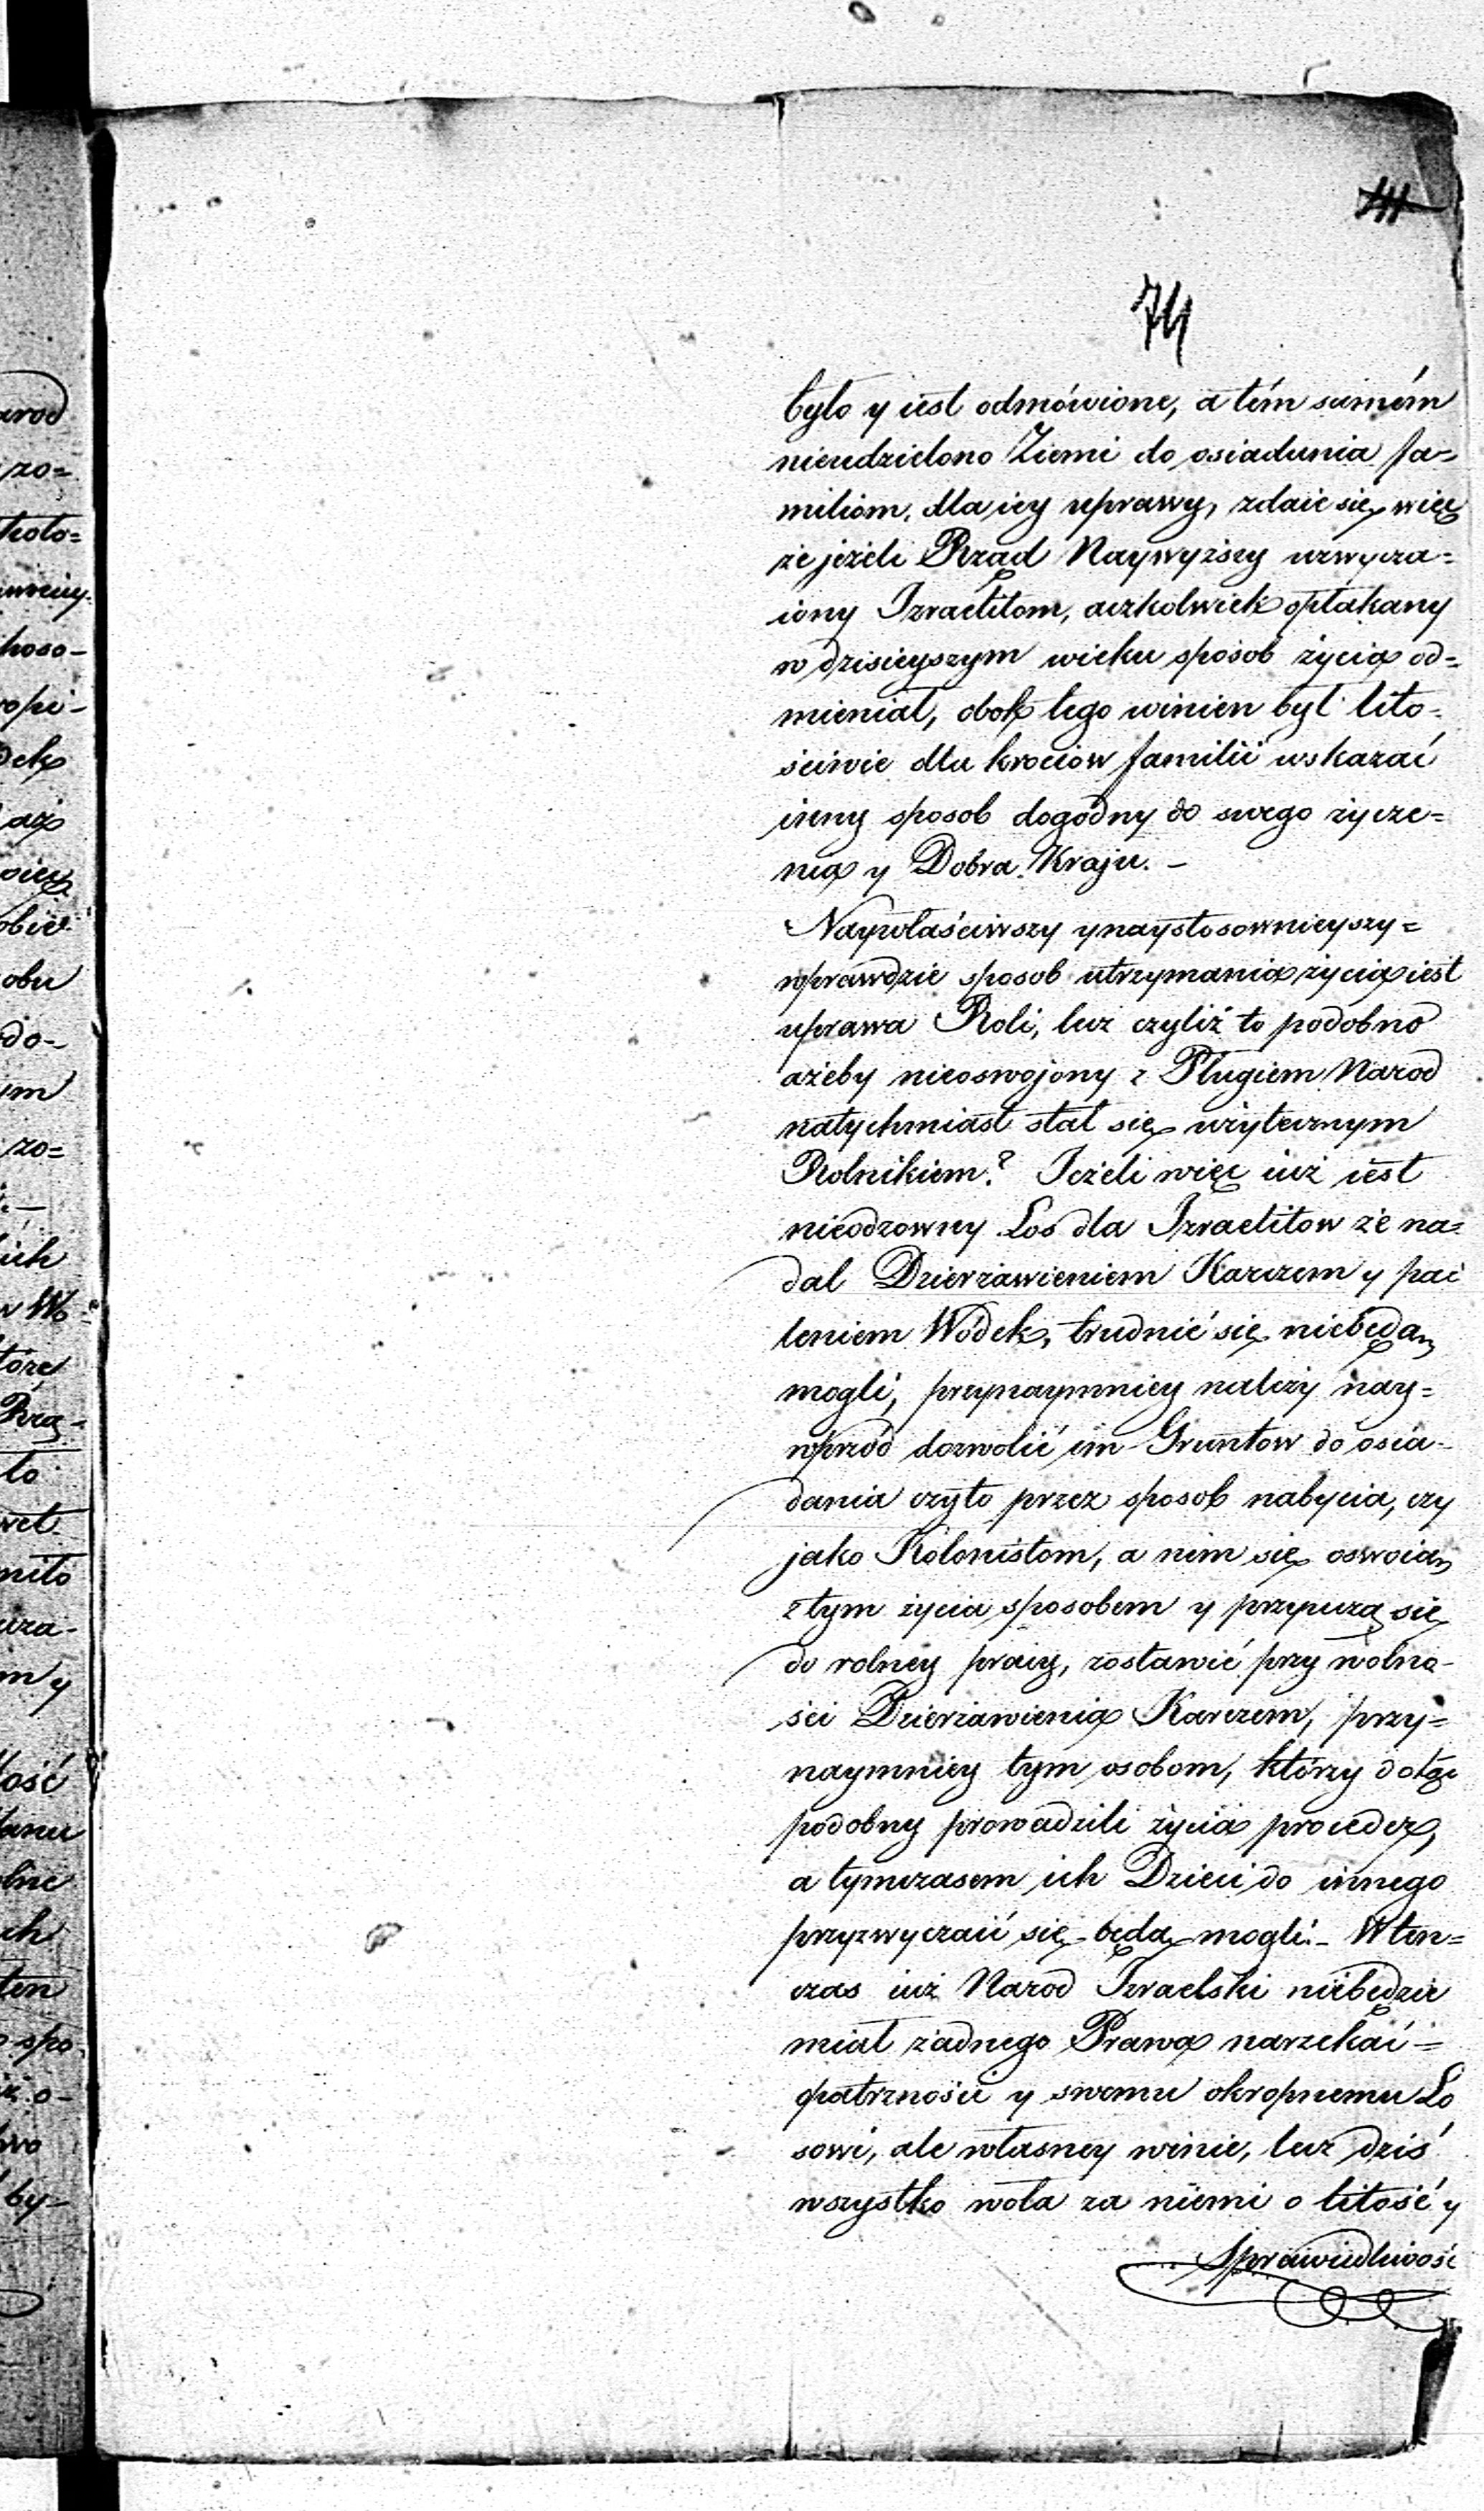 111
74
było y iest odmówione, a tém samém
nieudzielono Ziemi do osiadania fa=
miliom, dla iey uprawy, zdaie się więc
że jeżeli Rząd Naywyższy uzwycza=
iony Izraelitom, aczkolwiek opłakany
w dzisieyszym wieku sposob życia od=
mieniał, obok tego winien był lito=
ściwie dla krociow familii wskazać
inny sposob dogodny do swego życze=
nia y Dobra Kraju. –
Naywłaściwszy y naystosownieyszy=
wprawdzie sposob utrzymania życia iest
uprawa Roli, lecz czyliż to podobno
ażeby nieoswojony z Pługiem Narod
natychmiast stał się użytecznym
Rolnikiem? Jeżeli więc iuż iest
nieodzowny Los dla Izraelitow że na=
dal Dzierżawieniem Karczem y pa
leniem Wódek, trudnić się niebędą
mogli, przynaymniey należy nay=
wprzód dozwolić im Gruntow do osia-
dania czyto przez sposob nabycia, czy
jako Kolonistom, a nim się oswoią
z tym życia sposobem y przyuczą się
do rolney pracy, zostawić przy wolno-
ści Dzierżawienia Karczem, przy=
naymniey tym osobom, którzy dotąd
podobny prowadzili życia proceder,
a tymczasem ich Dzieci do innego
przyzwyczaić się będą mogli. – Wten=
czas iuż Narod Izraelski niebędzie
miał żadnego Prawa narzekać =
opatrzności y swemu okropnemu Lo
sowi, ale własney winie, lecz dziś
wszystko woła za niemi o litość y
Sprawiedliwość
arod
zo=
koło=
hoso-
opi-
dek
aż
obu
do-
ym
zo=
ich
w Wo
tóre
Rzą-
to
wet
m y
łość
lne
ch
ten
spo
o-
wo
by-